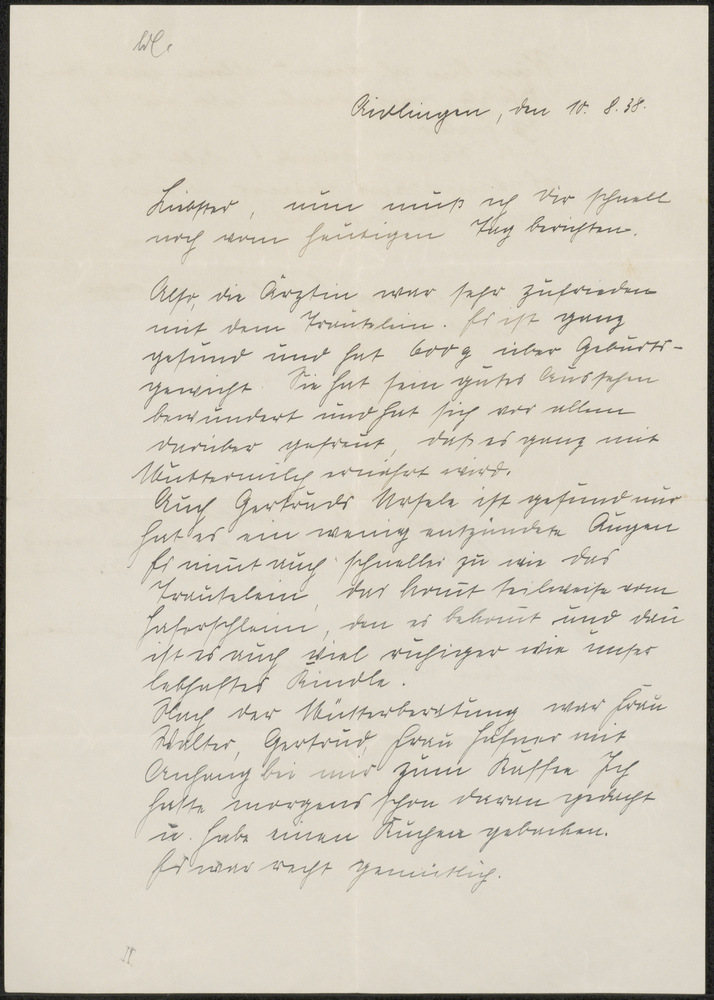 Aidlingen, den 10. 8. 38.
Liebster, nun muß ich Dir schnell
noch vom heutigen Tag berichten.
Also, die Ärztin war sehr zufrieden
mit dem Trautelein. Es ist ganz
gesund und hat 600 g über Geburts-
gewicht. Sie hat sein gutes Aussehen
bewundert und hat sich vor allem
darüber gefreut, daß es ganz mit
Muttermilch ernährt wird.
Auch Gertruds Ursele ist gesund nur
hat es ein wenig entzündete Augen
Es nimt auch schneller zu wie das
Trautelein, das komt teilweise vom
Haferschleim, den es bekomt und dan
ist es auch viel ruhiger wie unser
lebhaftes Kindle.
Nach der Mütterberatung war Frau
Walter, Gertrud, Frau Hafner mit
Anhang bei mir zum Kaffee Ich
hatte morgens schon daran gedacht
u. habe einen Kuchen gebacken.
Es war recht gemütlich.
II